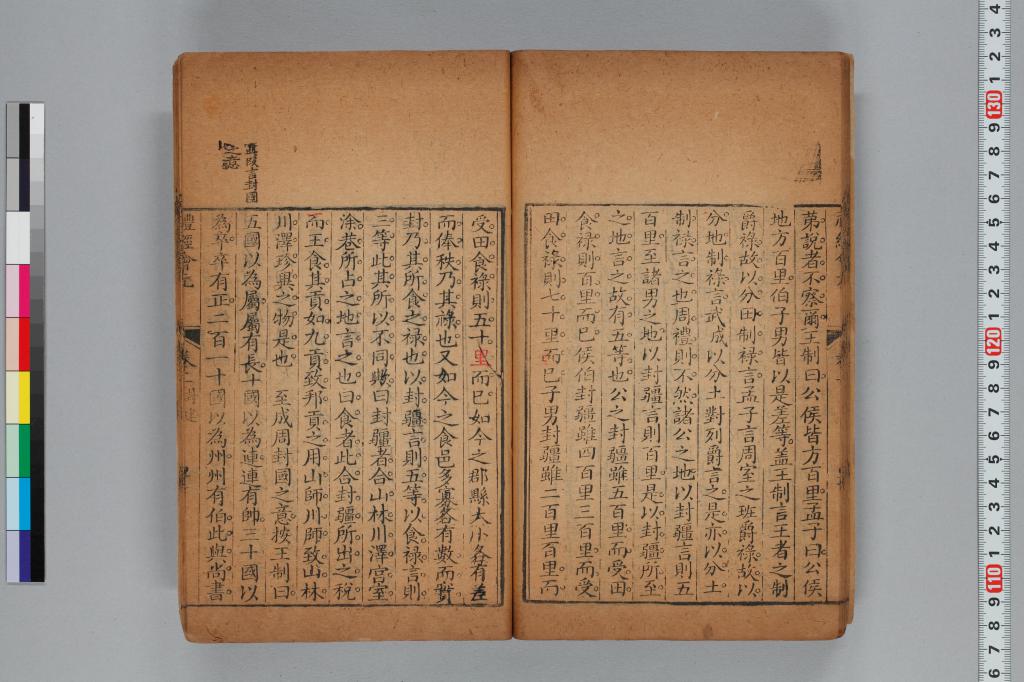 第說者不察爾王制曰公侯皆方百里孟子曰公侯
地方百里伯子男皆以是差等蓋王制言王者之制
爵祿故以分田制祿言孟子言周室之班爵祿故以
分地制祿言武成以分土對列爵言之是亦以分土
制祿言之也周禮則不然諸公之地以封疆言則五
百里至諸男之地以封疆言則百里是以封疆所至
之地言之故有五等也公之封疆雖五百里而受田
食祿則百里而已侯伯封疆雖四百里三百里而受
田食祿則七十里而已子男封疆雖二百里百里而
受田食祿則五十里而已如今之郡縣大小各有
而俸秩乃其祿也又如今之食邑多寡各有數而實
封乃其所食之祿也以封疆言則五等以食祿言則
三等此其所以不同歟曰封疆者合山林川澤宮室
涂巷所占之地言之也曰食者此合封疆所出之稅
而王食其貢如九貢致邦貢之用山師川師致山林
川澤珍異之物是也 至成周封國之意按王制曰
五國以為屬屬有長十國以為連連有帥三十國以
為卒卒有正二百一十國以為州州有伯此與尚書
言封國
之意
禮經會元